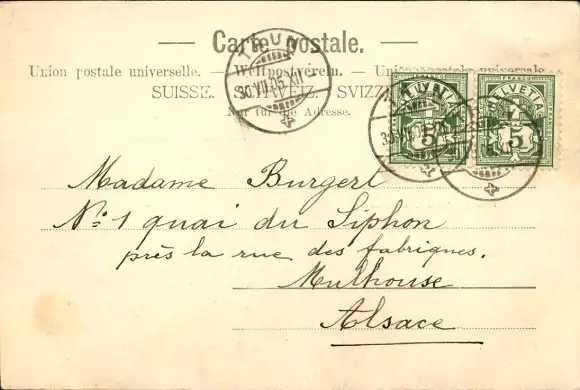 Carte postale.
Union postale universelle. — Weltpostverein. — Unione postale universale.
SUISSE. SCHWEIZ. SVIZZERA.
Nur für die Adresse.
THUN
30.VII.05.XII
HELVETIA
5
FRANCO
HELVETIA
5
Madame Burgert
No 1 quai du Siphon
près la rue des fabriques.
Mulhouse
Alsace